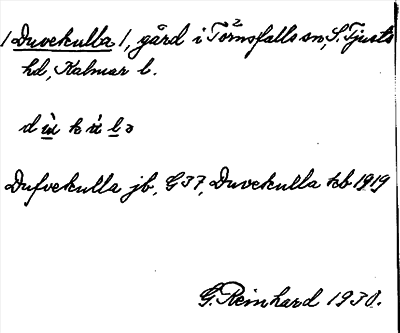 / Duvekulla /, gård i Törnsfalls sn, S. Tjusts
hd, Kalmar l.
dù kù lə
Dufvekulla jb, G 37, Duvekulla kb 1919
G. Reinhard 1930.